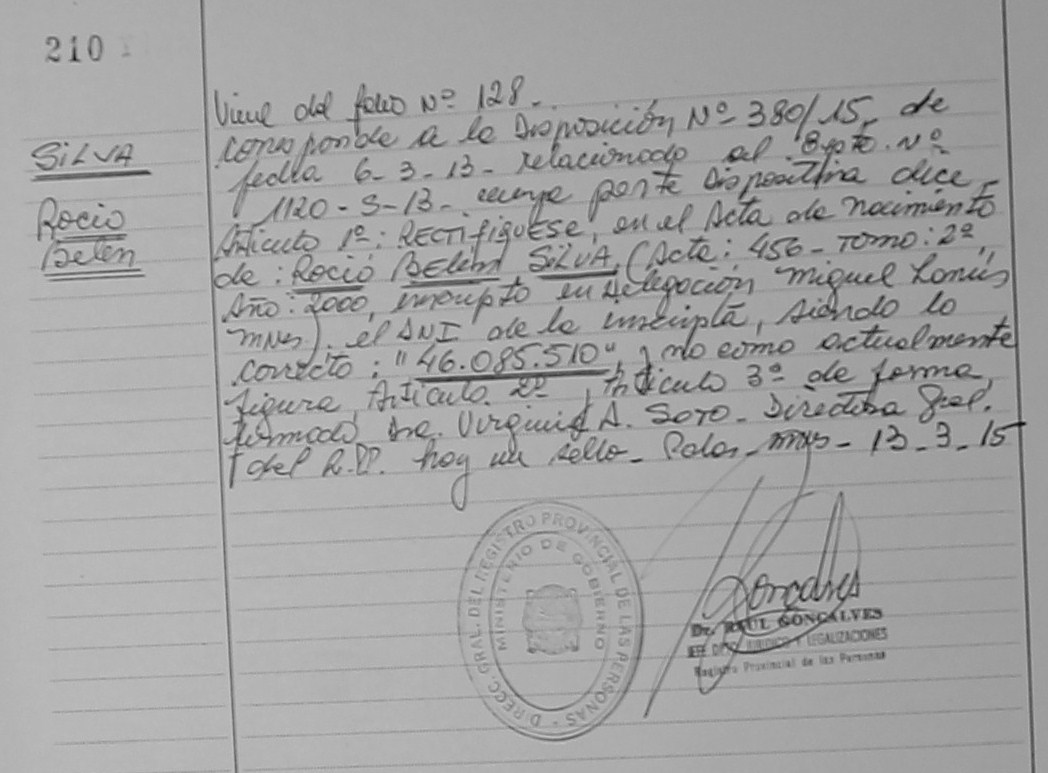 210
SILVA
Rocio
Belen
Viene del folio Nº 128.-
corresponde a la Disposición Nº 380/15, de
fecha 6-3-13- relacionado al Expte. Nº
1120-S-13- cuya parte Dispositiva dice
Articulo 1º: RECTIFIQUESE, en el Acta de nacimiento
de: Rocio BELEN SILVA, (Acta: 456- Tomo: 2º,
Año: 2000, inscripto en Delegación Miguel Lanús
mnes). el DNI de la inscripta, siendo lo
correcto: "46.085.510", y no como actualmente
figura, Articulo 2º, Articulo 3º de forma,
firmado Dra. Virginia A. SOTO- Directora Gral.
del R.P. hay un sello- Pdas- mnes- 13-3-15
DIRECC. GRAL. DEL REGISTRO PROVINCIAL DE LAS PERSONAS -
MINISTERIO DE GOBIERNO
Dr. RAUL GONCALVES
JEFE DPTO. JURIDICO Y LEGALIZACIONES
Registro Provincial de las Personas